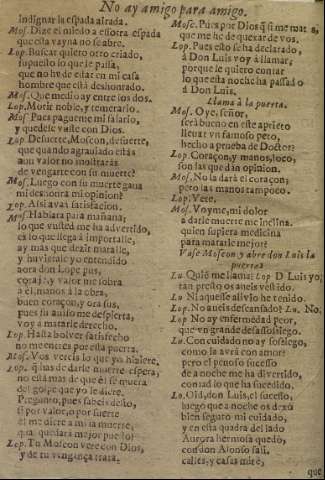 No ay amigo para amigo.
indignar la espada airada.
Mos. Dize el miedo a essotra espada
que esta vayna no se abre.
Lop. Buscar quiero otro criado,
supuesto lo que le passa,
que no ha de estar en mi casa
hombre que està deshonrado.
Mos. Que medio ay entre los dos.
Lop. Morir noble, y temerario.
Mos. Pues pagueme mi salario,
y quedese vuste con Dios.
Lop. De suerte, Moscon, de suerte,
que quando agrauiado estàs
aun valor no mostraràs
de vengarte con su muerte?
Mos. Luego con su muerte gana
mi deshonra mi opinion?
Lop. Assi avrà satisfacion.
Mos. Hablara para mañana;
lo que vusted me ha advertido,
es lo que llega à importalle,
ay mas que dezir matalle,
y huvieralo yo entendido
aora don Lope pus,
coraje, y valor me sobra
à el, manos à la obra,
buen coraçon, y ora sus,
pues su auiso me despierta,
voy à matarle derecho.
Lop. Hasta bolver satisfecho
no me entres por essa puerta.
Mos. Vos vereis lo que yo hiziere.
Lop. q̃ has de darle muerte espera;
no està mas de que èl se muera
del golpe que yo le diere.
Pregunto, pues sabeis desto,
si por valor, o por suerte
èl me diere à mi la muerte,
què quedarà mejor puesto?
Lop. Tu Moscon vete con Dios,
y de tu vengança trata.
Mosc. Pues por Dios q̃ si me mata,
que me he de quexar de vos.
Lop. Pues esto se ha declarado,
à Don Luis voy à llamar;
porque le quiero contar
lo que esta noche ha passado
à Don Luis.
Llama à la puerta.
Mos. Oye, señor,
serà bueno en este aprieto
lleuar vn famoso peto,
hecho a prueba de Doctor?
Lop. Coraçon, y manos, loco,
son las que dàn opinion.
Mos. No la darà el coraçon;
pero las manos tampoco.
Lop. Vete.
Mos. Voyme, mi dolor
à darle muerte me inclina.
quien supiera medicina
para matarle mejor!
Vase Moscon y abre don Luis la
puerta.
Lu. Quiè me llama? Lop. D. Luis yo;
tan presto os aveis vestido.
Lu. Ni aquesse alivio he tenido.
Lop. No aueis descansado? Lu. No.
Lop. No ay enfermedad peor,
que vn grande desassossiego.
Lu. Con cuidado no ay sosiego,
como la avrà con amor?
pero el penoso sucesso
de a noche me ha divertido,
contad lo que ha sucedido.
Lo. Oid, don Luis, el sucesso,
luego que a noche os dexò
bien seguro mi cuidado,
y en esta quadra del lado
Aurora hermosa quedò,
con don Alonso salì,
calles, y casas mirè,
que